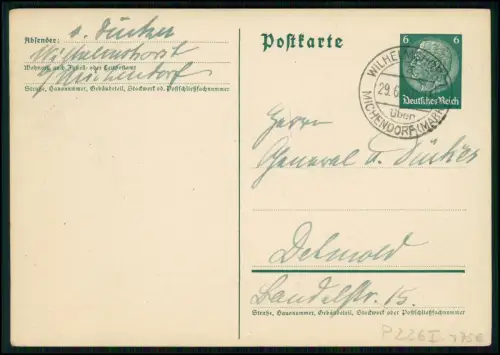 Absender: v. Dücker
Wilhelmshorst
Wohnort, auch Zustell- oder Leitpostamt
b/ Michendorf
Straße, Hausnummer, Gebäudeteil, Stockwerk od. Postschließfachnummer
Postkarte
6 6
Deutsches Reich
WILHELMSHORST
29.6.
über
MICHENDORF (MARK)
Herrn
General v. Dücker
Detmold
Bandelstr. 15.
Straße, Hausnummer, Gebäudeteil, Stockwerk oder Postschließfachnummer
P226I